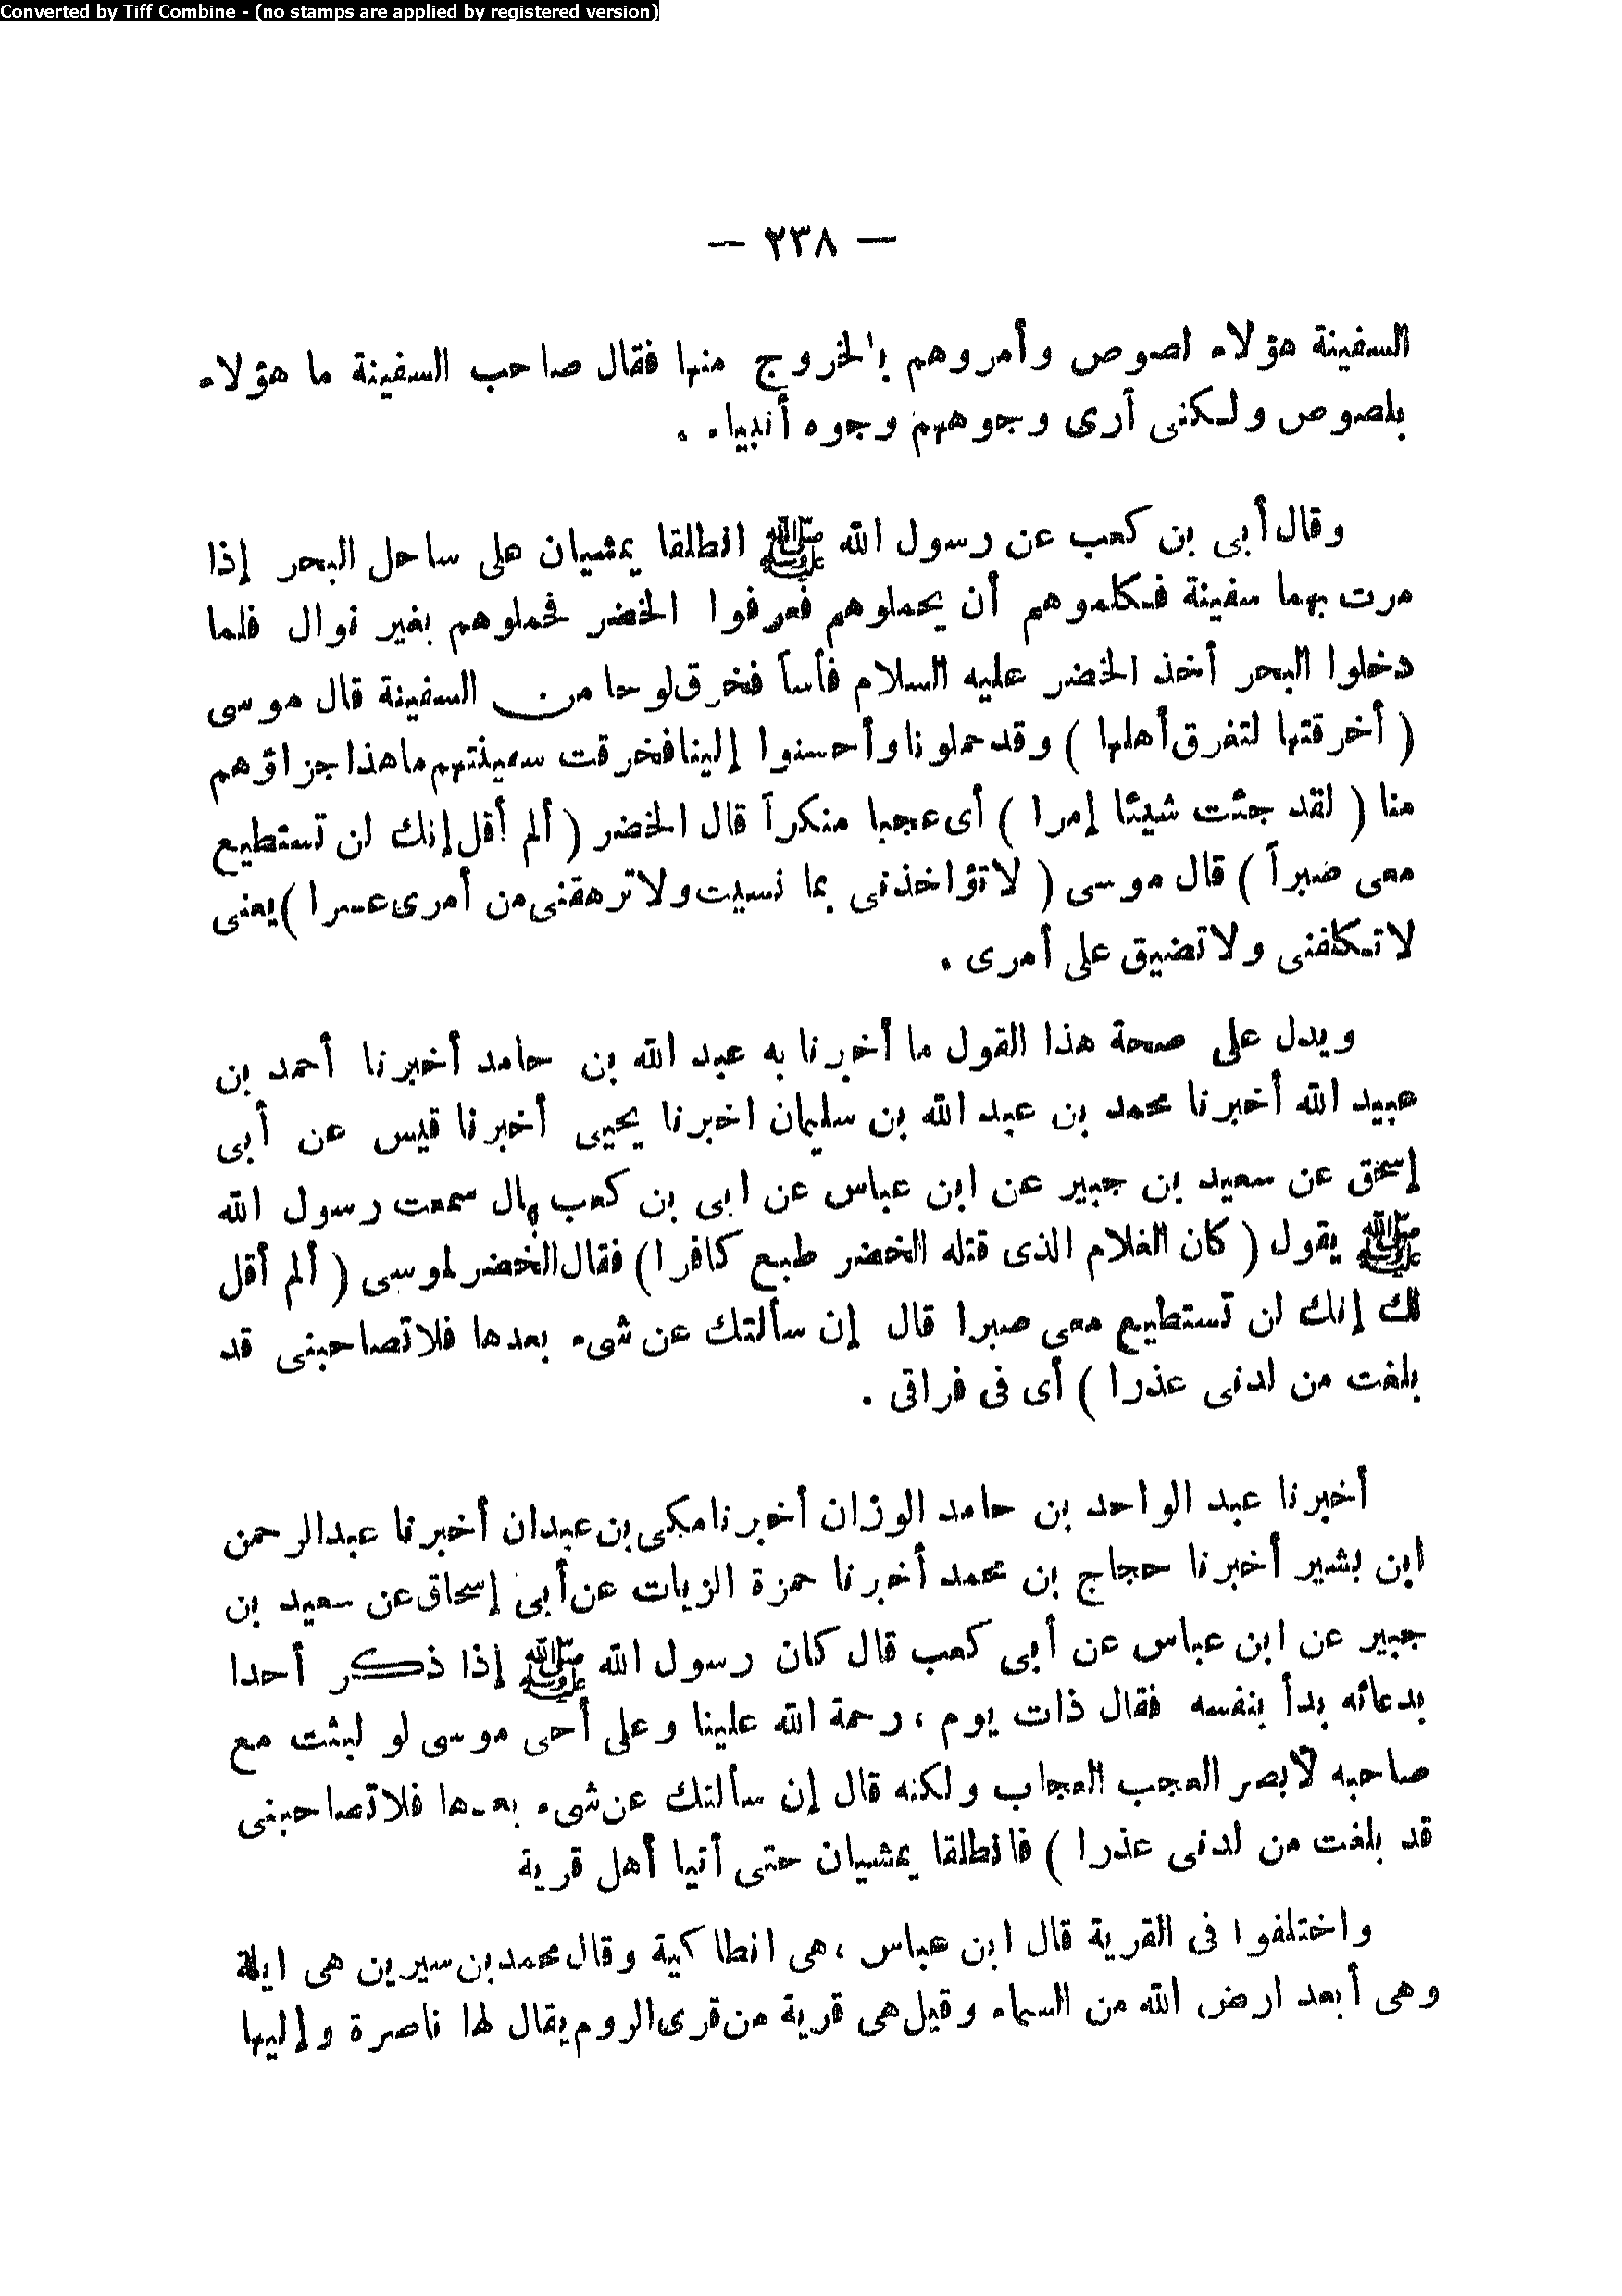 Converted by Tiff Combine - (no stamps are applied by registered version)
— ٢٣٨ —
السفينة هؤلاء لصوص وأمروهم بالخروج منها فقال صاحب السفينة ما هؤلاء
بلصوص ولكنى أرى وجوههم وجوه أنبياء .
وقال أبى بن كعب عن رسول الله ﷺ انطلقا يمشيان على ساحل البحر إذا
مرت بهما سفينة فكلموهم أن يحملوهم فعرفوا الخضر فحملوهم بغير نوال فلما
دخلوا البحر أخذ الخضر عليه السلام فأساً فخرق لوحا من السفينة قال موسى
( أخرقتها لتغرق أهلها ) وقد حملونا وأحسنوا إلينا فخرقت سفينتهم ما هذا جزاؤهم
منا ( لقد جئت شيئا إمرا ) أى عجبا منكراً قال الخضر ( ألم أقل إنك لن تستطيع
معى ضبراً ) قال موسى ( لا تؤاخذنى بما نسيت ولا ترهقنى من أمرى عسرا ) يعنى
لا تكلفنى ولا تضيق على أمرى .
ويدل على صحة هذا القول ما أخبرنا به عبد الله بن حامد أخبرنا أحمد بن
عبيد الله أخبرنا محمد بن عبد الله بن سليمان اخبرنا يحيى أخبرنا قيس عن أبى
إسحق عن سعيد بن جبير عن ابن عباس عن ابى بن كعب قال سمعت رسول الله
ﷺ يقول ( كان الغلام الذى قتله الخضر طبع كافرا ) فقال الخضر لموسى ( ألم أقل
لك إنك لن تستطيع معى صبرا قال إن سألتك عن شىء بعدها فلا تصاحبنى قد
بلغت من لدنى عذرا ) أى فى فراقى .
أخبرنا عبد الواحد بن حامد الوزان أخبرنا مكى بن عبدان أخبرنا عبد الرحمن
ابن بشير أخبرنا حجاج بن محمد أخبرنا حمزة الزيات عن أبى إسحاق عن سعيد بن
جبير عن ابن عباس عن أبى كعب قال كان رسول الله ﷺ إذا ذكر أحدا
بدعائه بدأ بنفسه فقال ذات يوم ، رحمة الله علينا وعلى أحى موسى لو لبثت مع
صاحبه لأبصر العجب العجاب ولكنه قال إن سألتك عن شىء بعدها فلا تصاحبنى
قد بلغت من لدنى عذرا ) فانطلقا يمشيان حتى أتيا أهل قرية
واختلفوا فى القرية قال ابن عباس ، هى انطاكية وقال محمد بن سيرين هى ايلة
وهى أبعد ارض الله من السماء وقيل هى قرية من قرى الروم يقال لها ناصرة وإليها